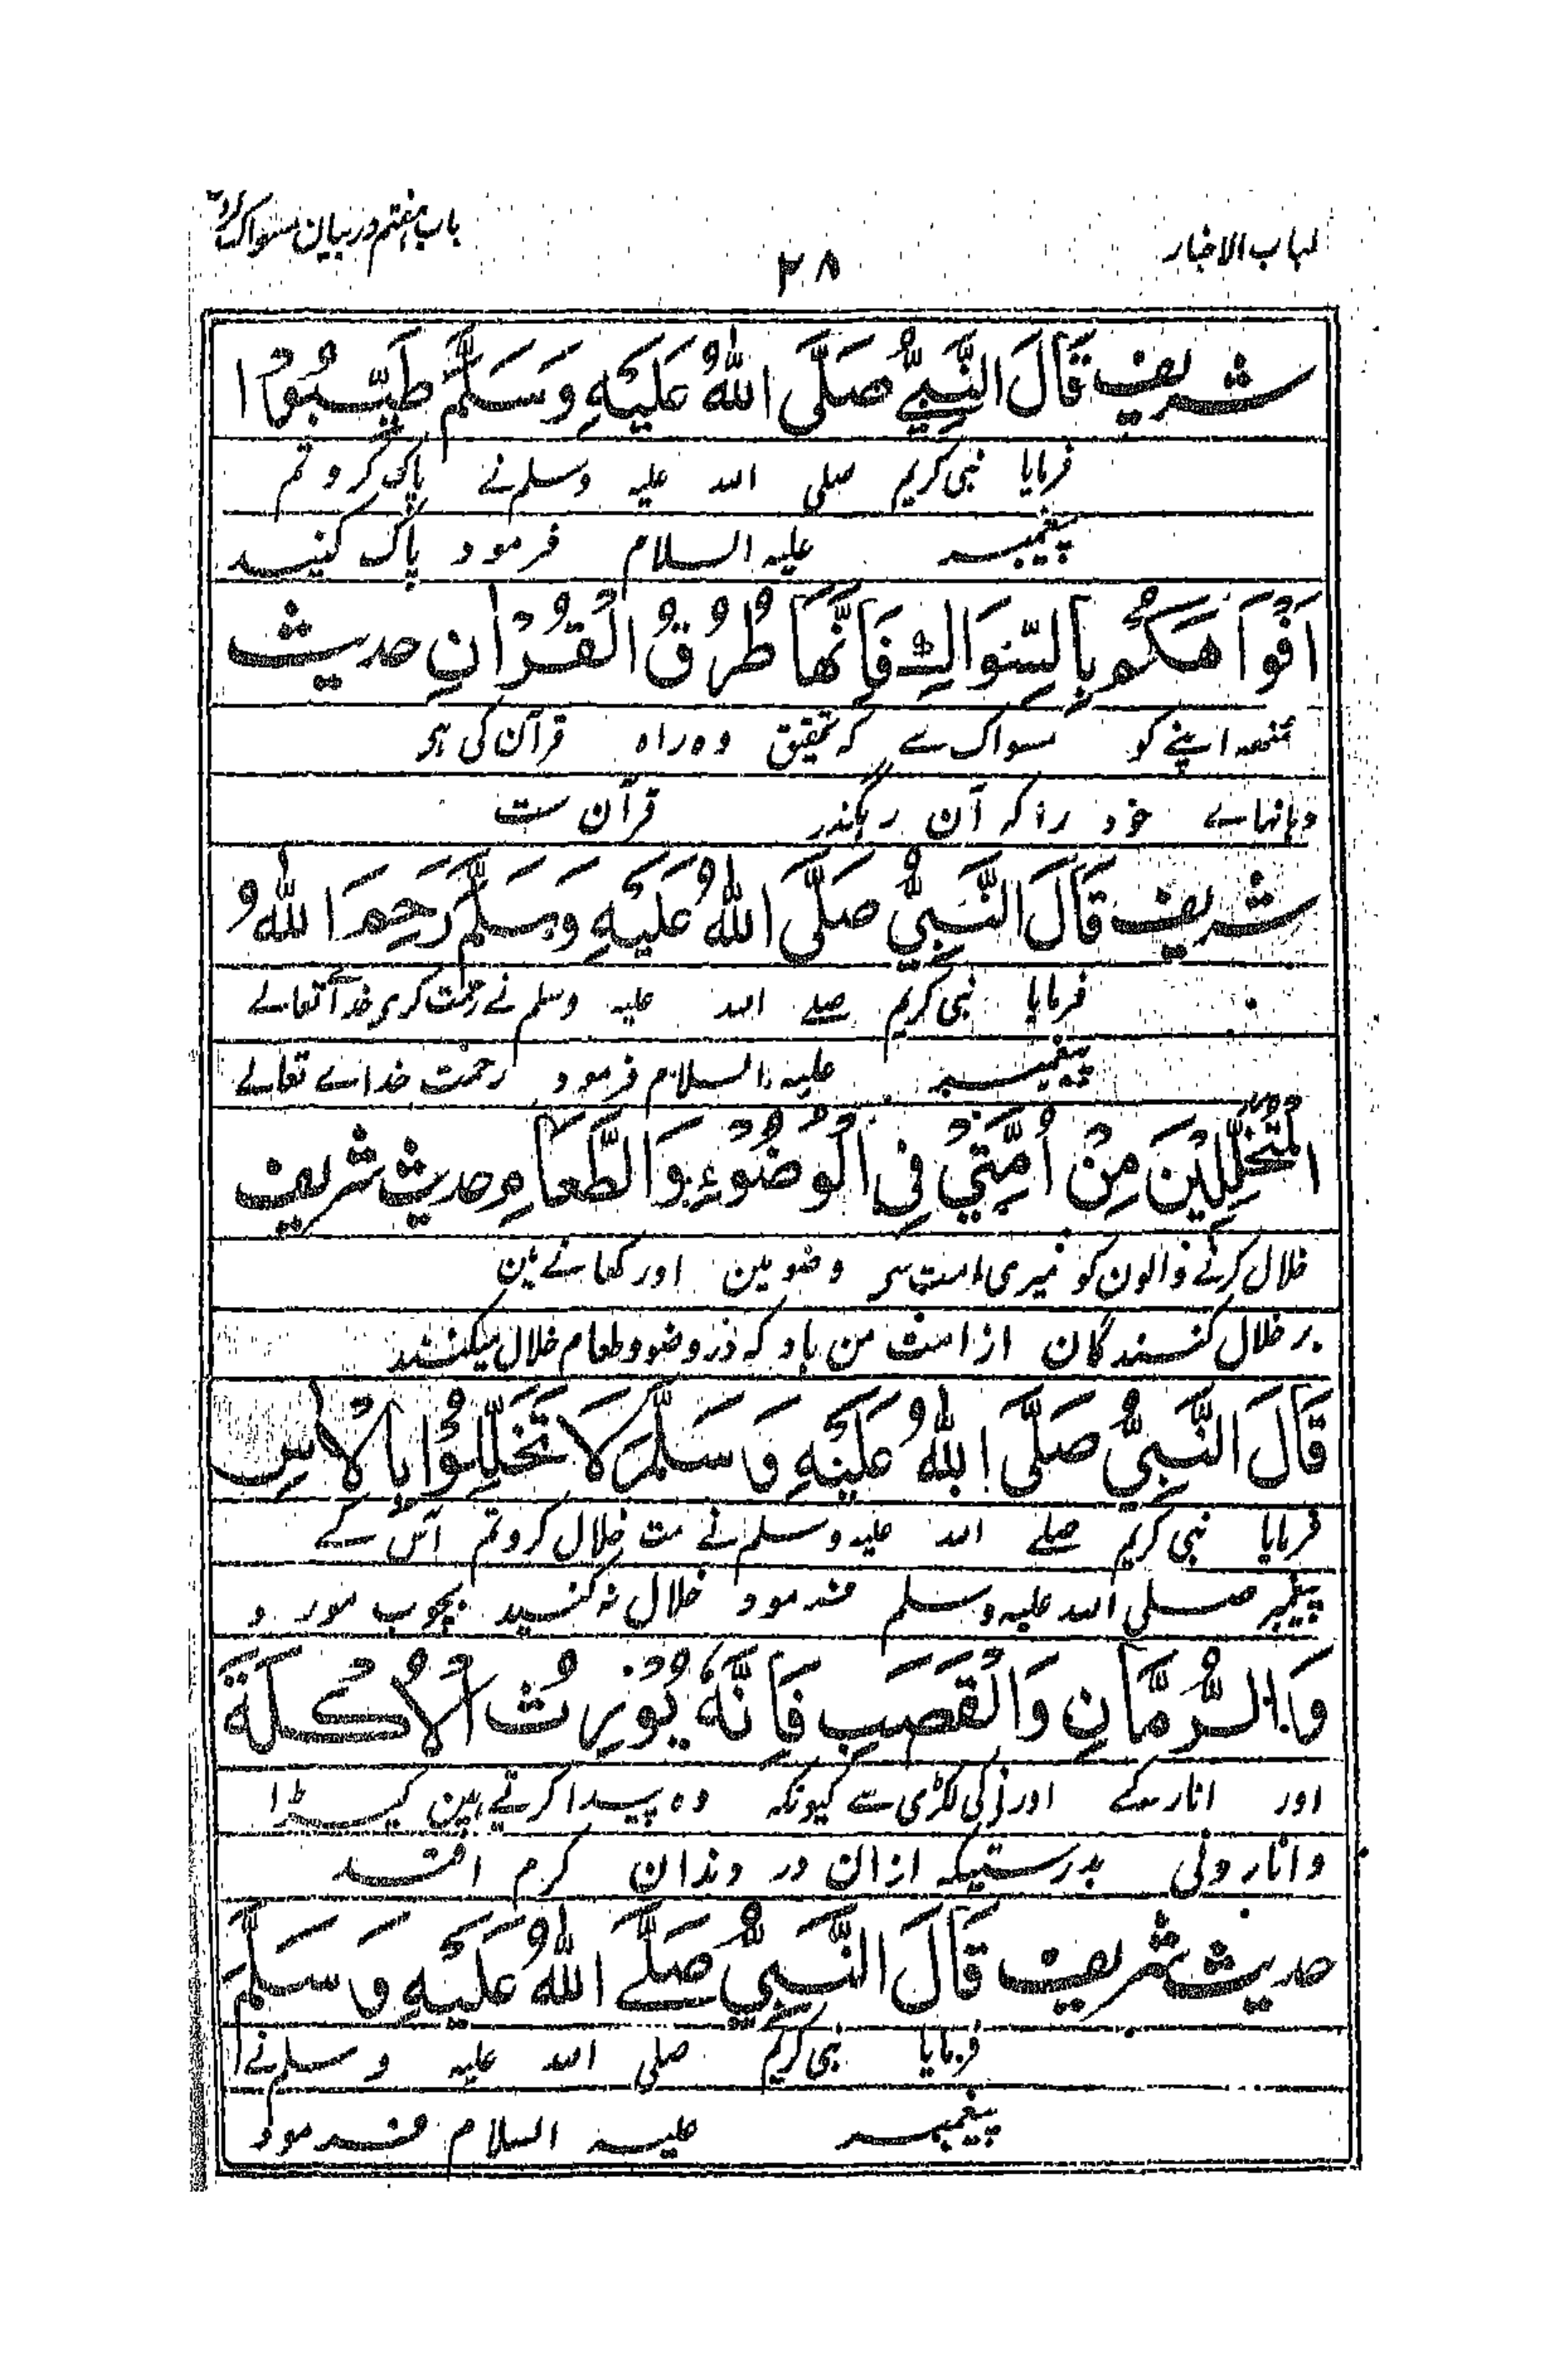 لباب الاخبار
۲۸
باب هفتم در بیان مسواک
شریف قَالَ النَّبِيُّ صَلَّى اللهُ عَلَيْهِ وَسَلَّمَ طَيِّبُوْا
فرمایا نبی کریم صلی اللہ علیہ وسلم نے پاک کرو تم
پیغمبر علیہ السلام فرمود پاک کنید
اَفْوَاهَكُمْ بِالسِّوَاكِ فَاِنَّهَا طُرُقُ الْقُرْاٰنِ حدیث
منھہ اپنے کو مسواک سے کہ تحقیق وہ راہ قرآن کی ہی
دہانہاے خود را کہ آن رہگذر قرآن ست
شریف قَالَ النَّبِيُّ صَلَّى اللهُ عَلَيْهِ وَسَلَّمَ رَحِمَ اللهُ
فرمایا نبی کریم صلے اللہ علیہ وسلم نے رحمت کری خدا تعالے
پیغمبر علیہ السلام فرمود رحمت خداے تعالے
الْمُتَخَلِّلِيْنَ مِنْ اُمَّتِيْ فِي الْوُضُوْءِ وَالطَّعَامِ حدیث شریف
خلال کرنے والون کو میری امت سی وضو مین اور کھانے مین
بر خلال کنندگان از امت من باد کہ در وضو و طعام خلال میکنند
قَالَ النَّبِيُّ صَلَّى اللهُ عَلَيْهِ وَسَلَّمَ لَا تَخَلَّلُوْا بِالْاٰسِ
فرمایا نبی کریم صلے اللہ علیہ وسلم نے مت خلال کرو تم آس کے
پیغمبر صلی اللہ علیہ وسلم فرمود خلال نہ کنید بچوب مورد و
وَالرُّمَّانِ وَالْقَصَبِ فَاِنَّهٗ يُوْرِثُ الْاُكْلَةَ
اور انار کے اور نی کی لکڑی سے کیونکہ وہ پیدا کرتے ہین کیڑا
و انار ونی بدرستیکہ ازان در دندان کرم افتد
حدیث شریف قَالَ النَّبِيُّ صَلَّے اللهُ عَلَيْهِ وَسَلَّمَ
فرمایا نبی کریم صلی اللہ علیہ وسلم نے
پیغمبر علیہ السلام فرمود